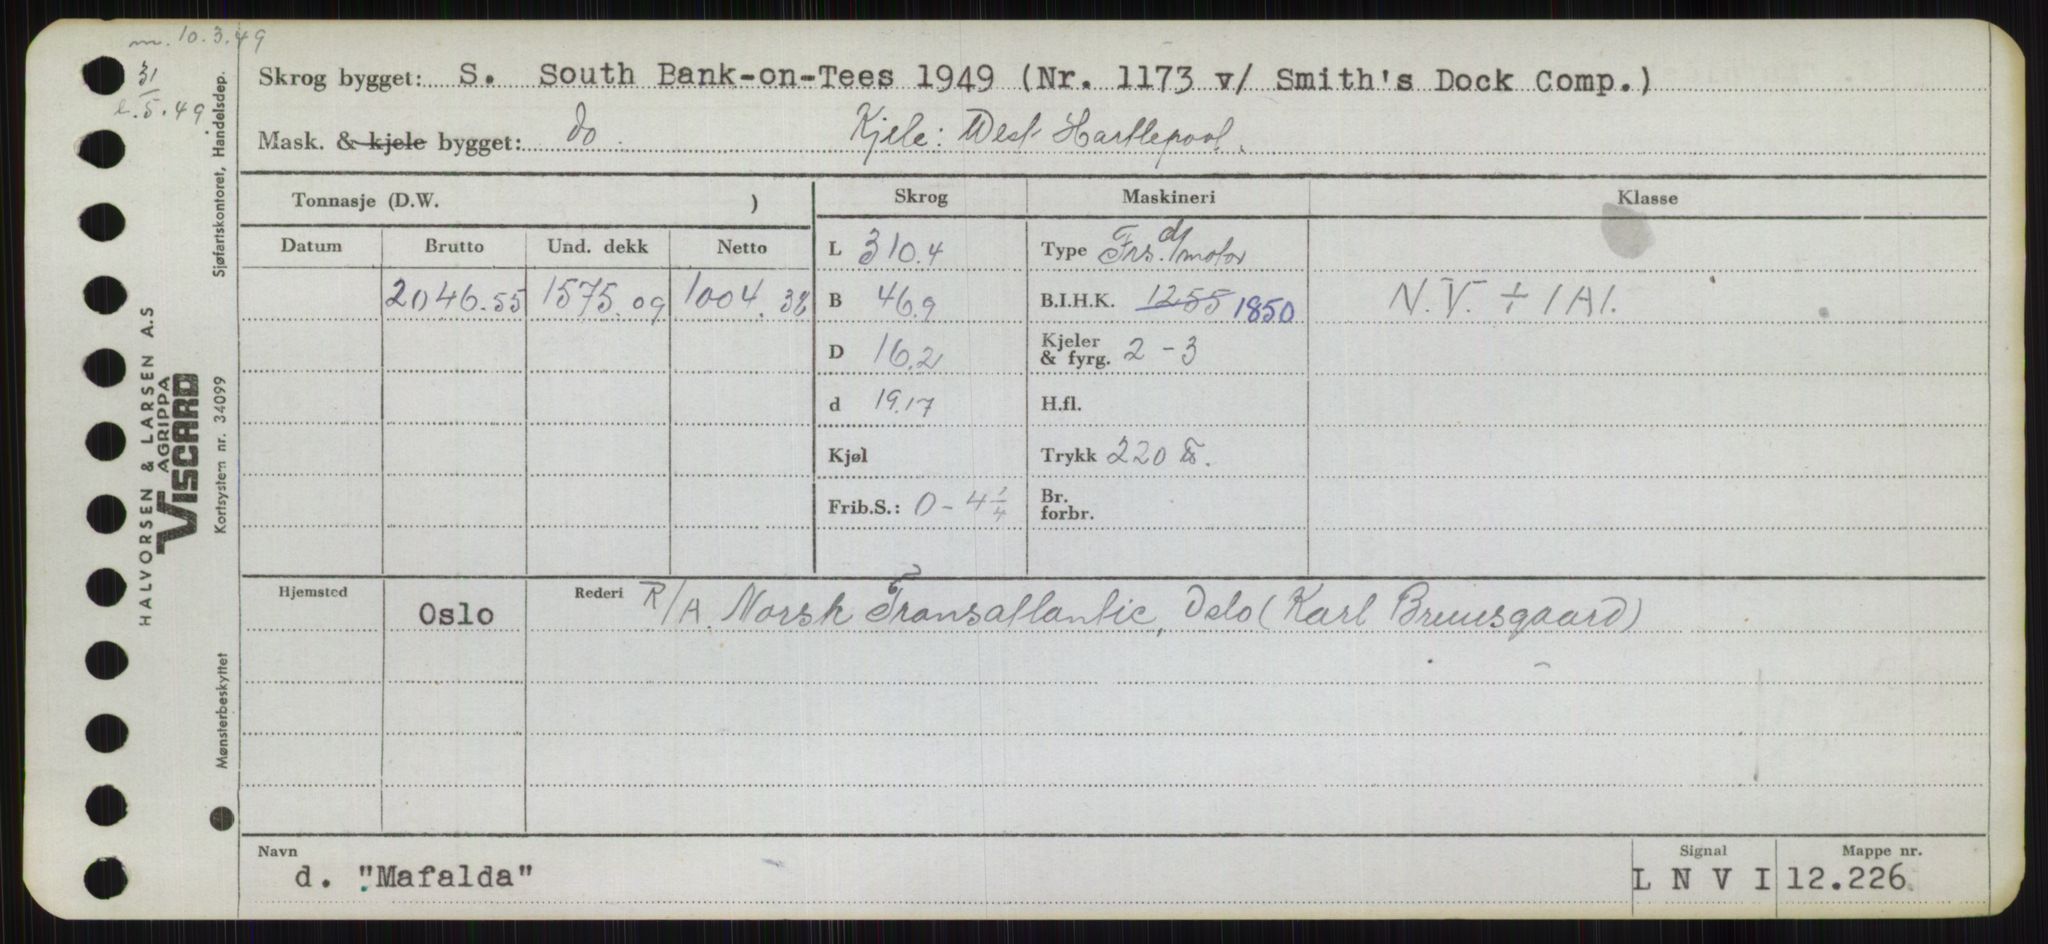 m. 10.3.49
31
l.5.49
Skrog bygget: S. South Bank-on-Tees 1949 (Nr. 1173 v/ Smith's Dock Comp.)
Mask. & kjele bygget: do. Kjele: West Hartlepool.
Tonnasje (D.W. )
Skrog Maskineri Klasse
Datum Brutto Und. dekk Netto
2046.55 1575.09 1004.38
L 310.4
B 46.9
D 16.2
d 19.17
Kjøl
Frib.S.: 0-4 1/4
Type motor
B.I.H.K. 1255 1850
Kjeler
& fyrg. 2-3
H.fl.
Trykk 220
Br.
forbr.
N.V. + 1A1.
Hjemsted Oslo Rederi R/A. Norsk Transatlantic, Oslo (Karl Bruusgaard)
Navn
d. "Mafalda"
Signal
L N V I
Mappe nr.
12.226
Sjøfartskontoret, Handelsdep.
HALVORSEN & LARSEN A.S
AGRIPPA
VISCARD
Kortsystem nr. 34099
Mønsterbeskyttet